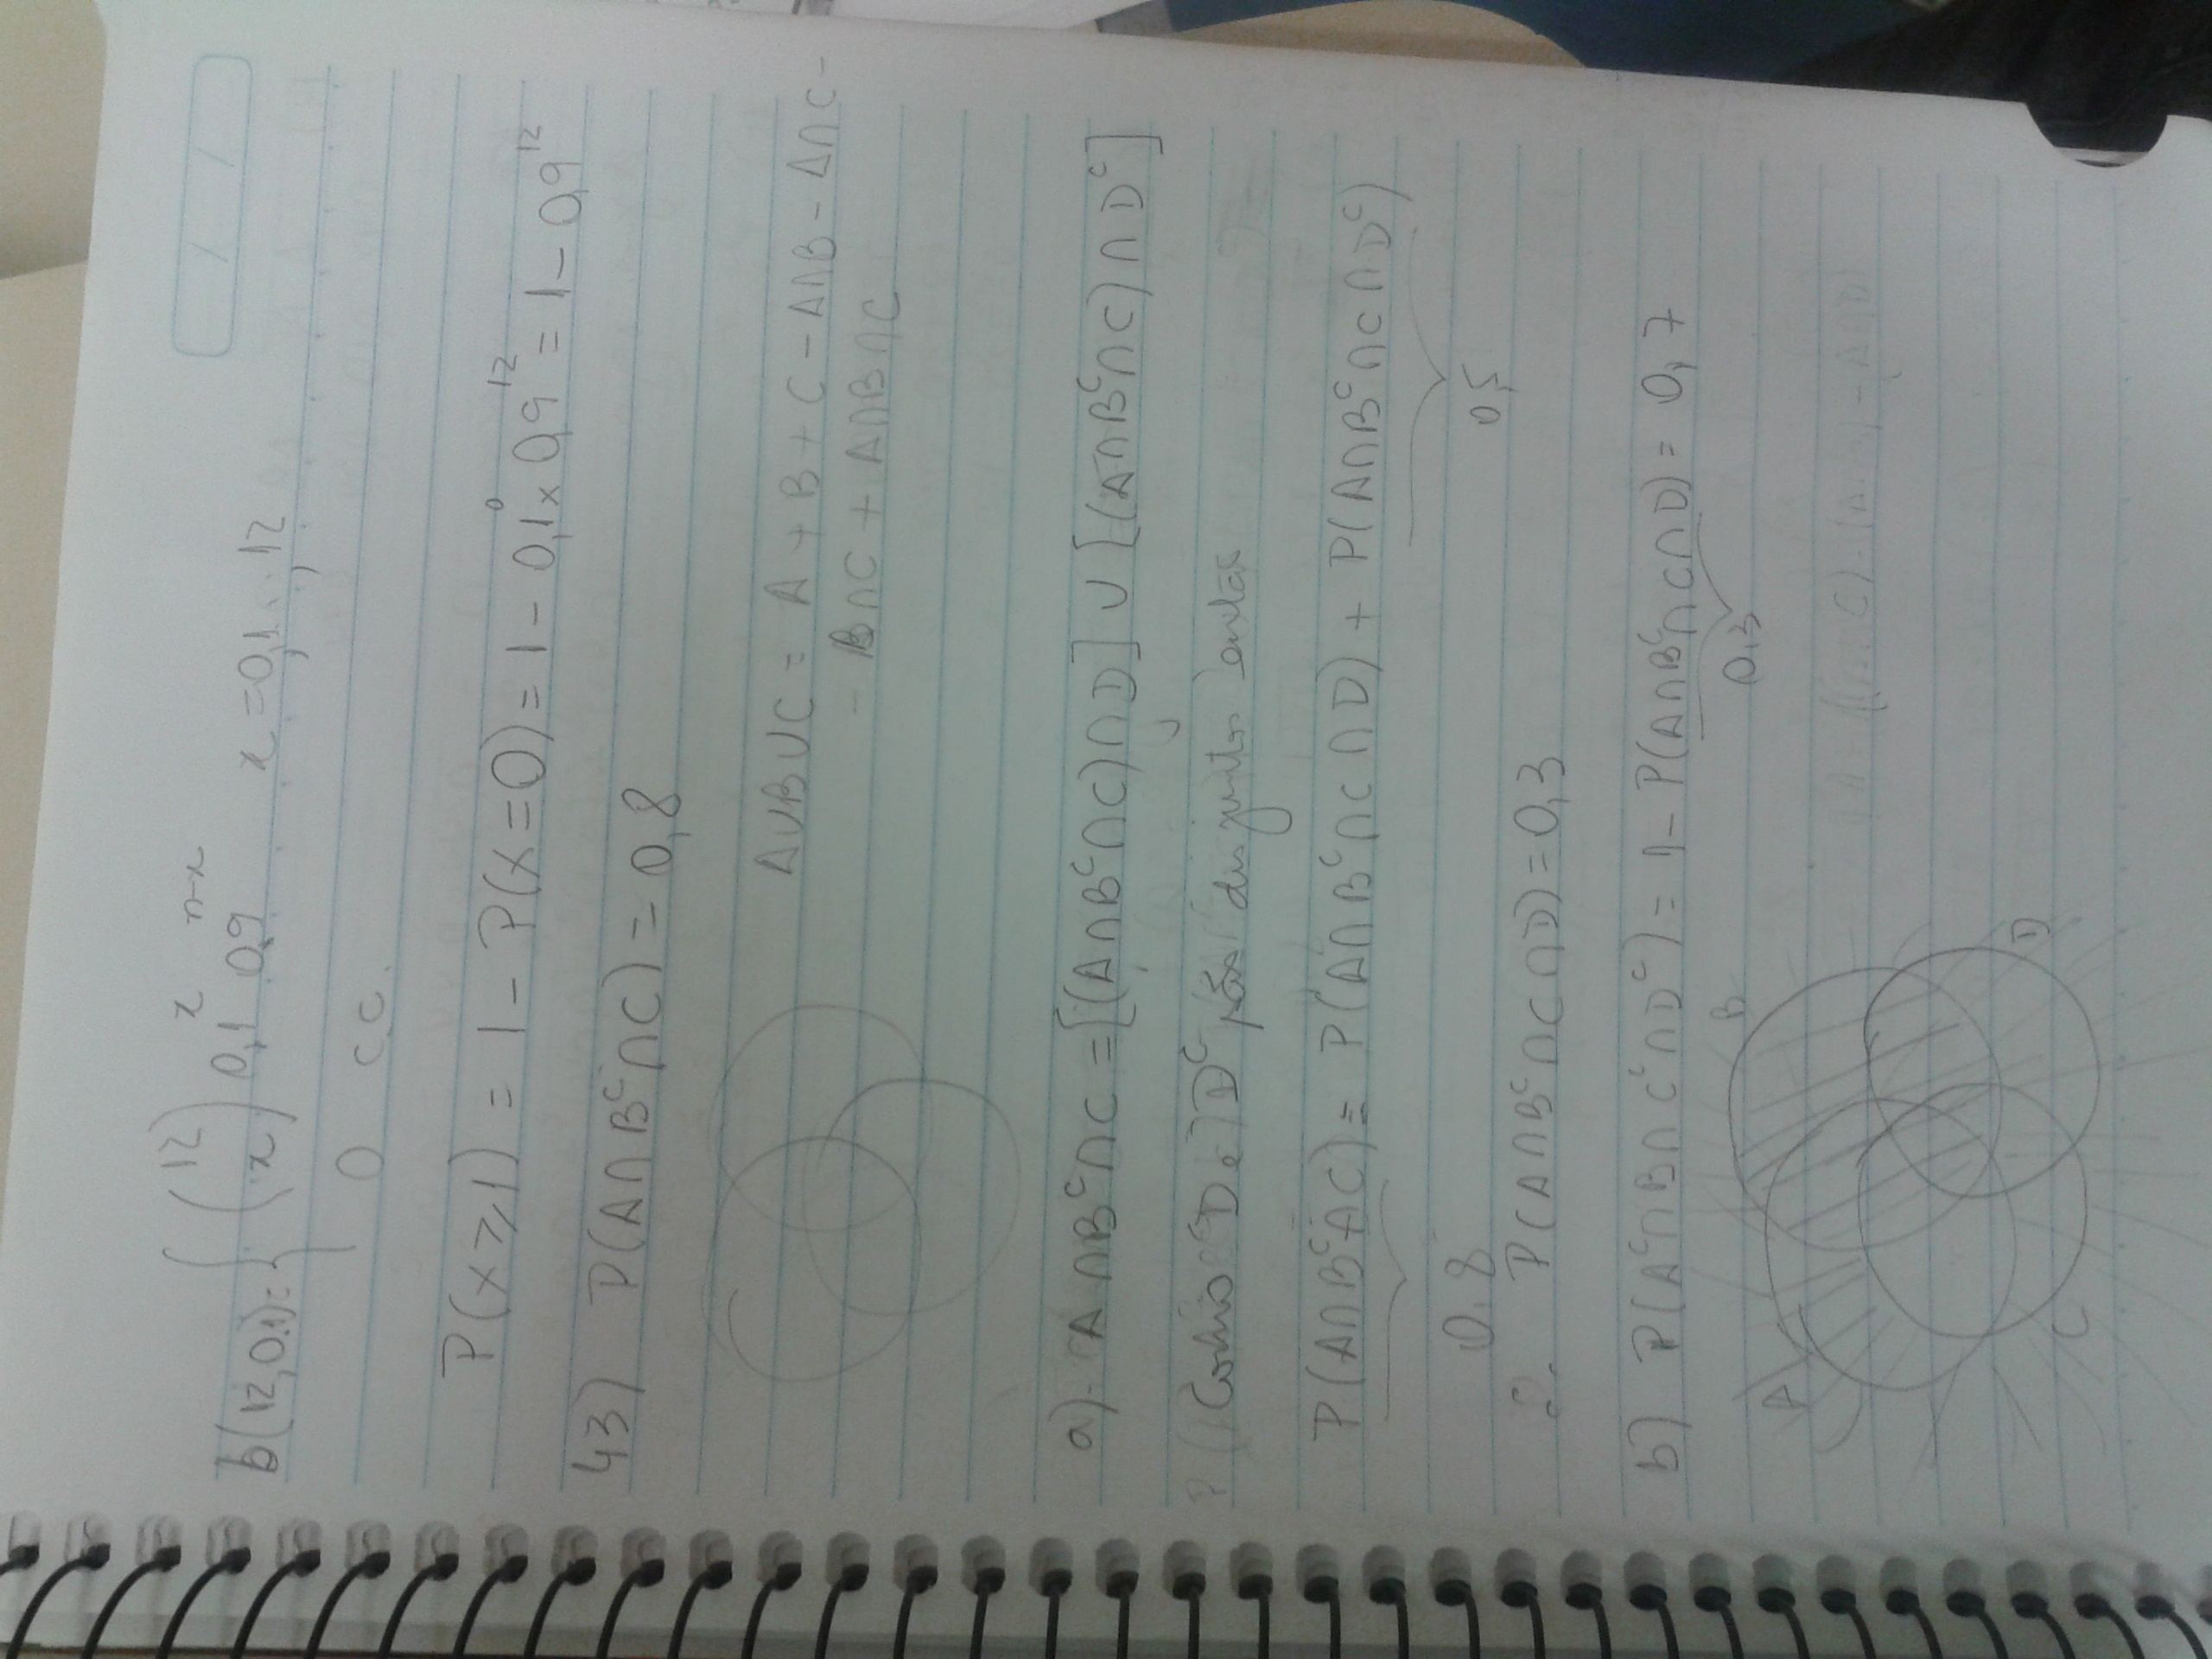 b(12,0.1): { (12 x) 0,1^x 0,9^{n-x} x = 0,1...,12
0 c.c.
P(x ⩾ 1) = 1 - P(x = 0) = 1 - 0,1^0 x 0,9^12 = 1 - 0,9^12
43) P(A∩B^c∩C) = 0,8
A∪B∪C = A + B + C - A∩B - A∩C -
- B∩C + A∩B∩C
a) A∩B^c∩C = [(A∩B^c∩C)∩D] ∪ [(A∩B^c∩C)∩D^c]
Como D e D^c são disjuntos então
P(A∩B^c∩C) = P(A∩B^c∩C∩D) + P(A∩B^c∩C∩D^c)
0,8 0,5
P(A∩B^c∩C∩D) = 0,3
b) P(A^c∩B∩C^c∩D^c) = 1 - P(A∩B^c∩C∩D) = 0,7
0,3
A B
C D